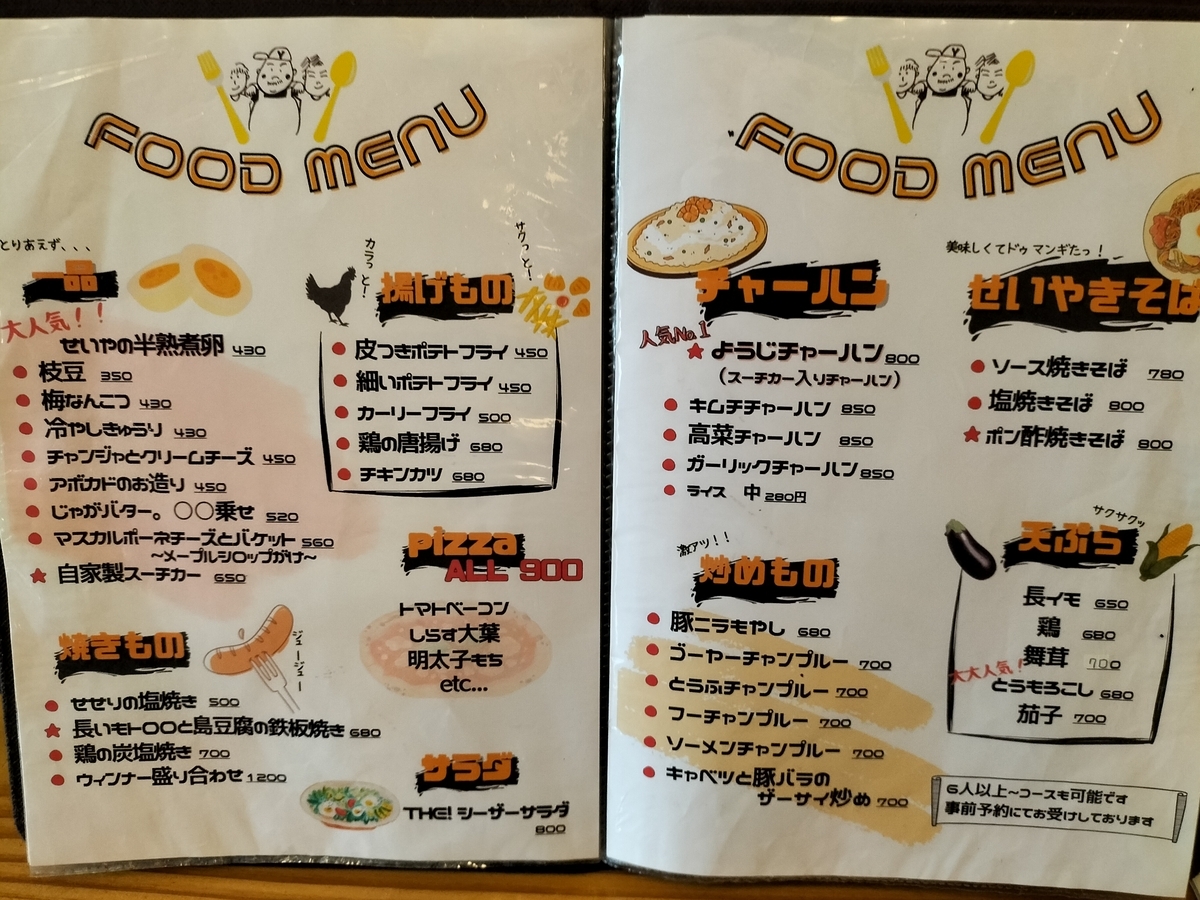 FOOD MENU
とりあえず、、、
一品
大人気！！
せいやの半熟煮卵 430
枝豆 350
梅なんこつ 430
冷やしきゅうり 430
チャンジャとクリームチーズ 450
アボカドのお造り 450
じゃがバター。〇〇乗せ 520
マスカルポーネチーズとバケット 560
～メープルシロップがけ～
自家製スーチカー 650
焼きもの
ジュージュー
せせりの塩焼き 500
長いもトロロと島豆腐の鉄板焼き 680
鶏の炭塩焼き 700
ウィンナー盛り合わせ 1200
カラっと！
サクっと！
揚げもの
皮つきポテトフライ 450
細いポテトフライ 450
カーリーフライ 500
鶏の唐揚げ 680
チキンカツ 680
pizza
ALL 900
トマトベーコン
しらす大葉
明太子もち
etc...
サラダ
THE! シーザーサラダ
800
FOOD MENU
チャーハン
人気No.1
ようじチャーハン 800
（スーチカー入りチャーハン）
キムチチャーハン 850
高菜チャーハン 850
ガーリックチャーハン 850
ライス 中 280円
激アツ！！
炒めもの
豚ニラもやし 680
ゴーヤーチャンプルー 700
とうふチャンプルー 700
フーチャンプルー 700
ソーメンチャンプルー 700
キャベツと豚バラの
ザーサイ炒め 700
美味しくてドゥマンギたっ！
せいやきそば
ソース焼きそば 780
塩焼きそば 800
ポン酢焼きそば 800
サクサクッ
天ぷら
長イモ 650
鶏 680
舞茸 700
大大人気！
とうもろこし 680
茄子 700
6人以上～コースも可能です
事前予約にてお受けしております